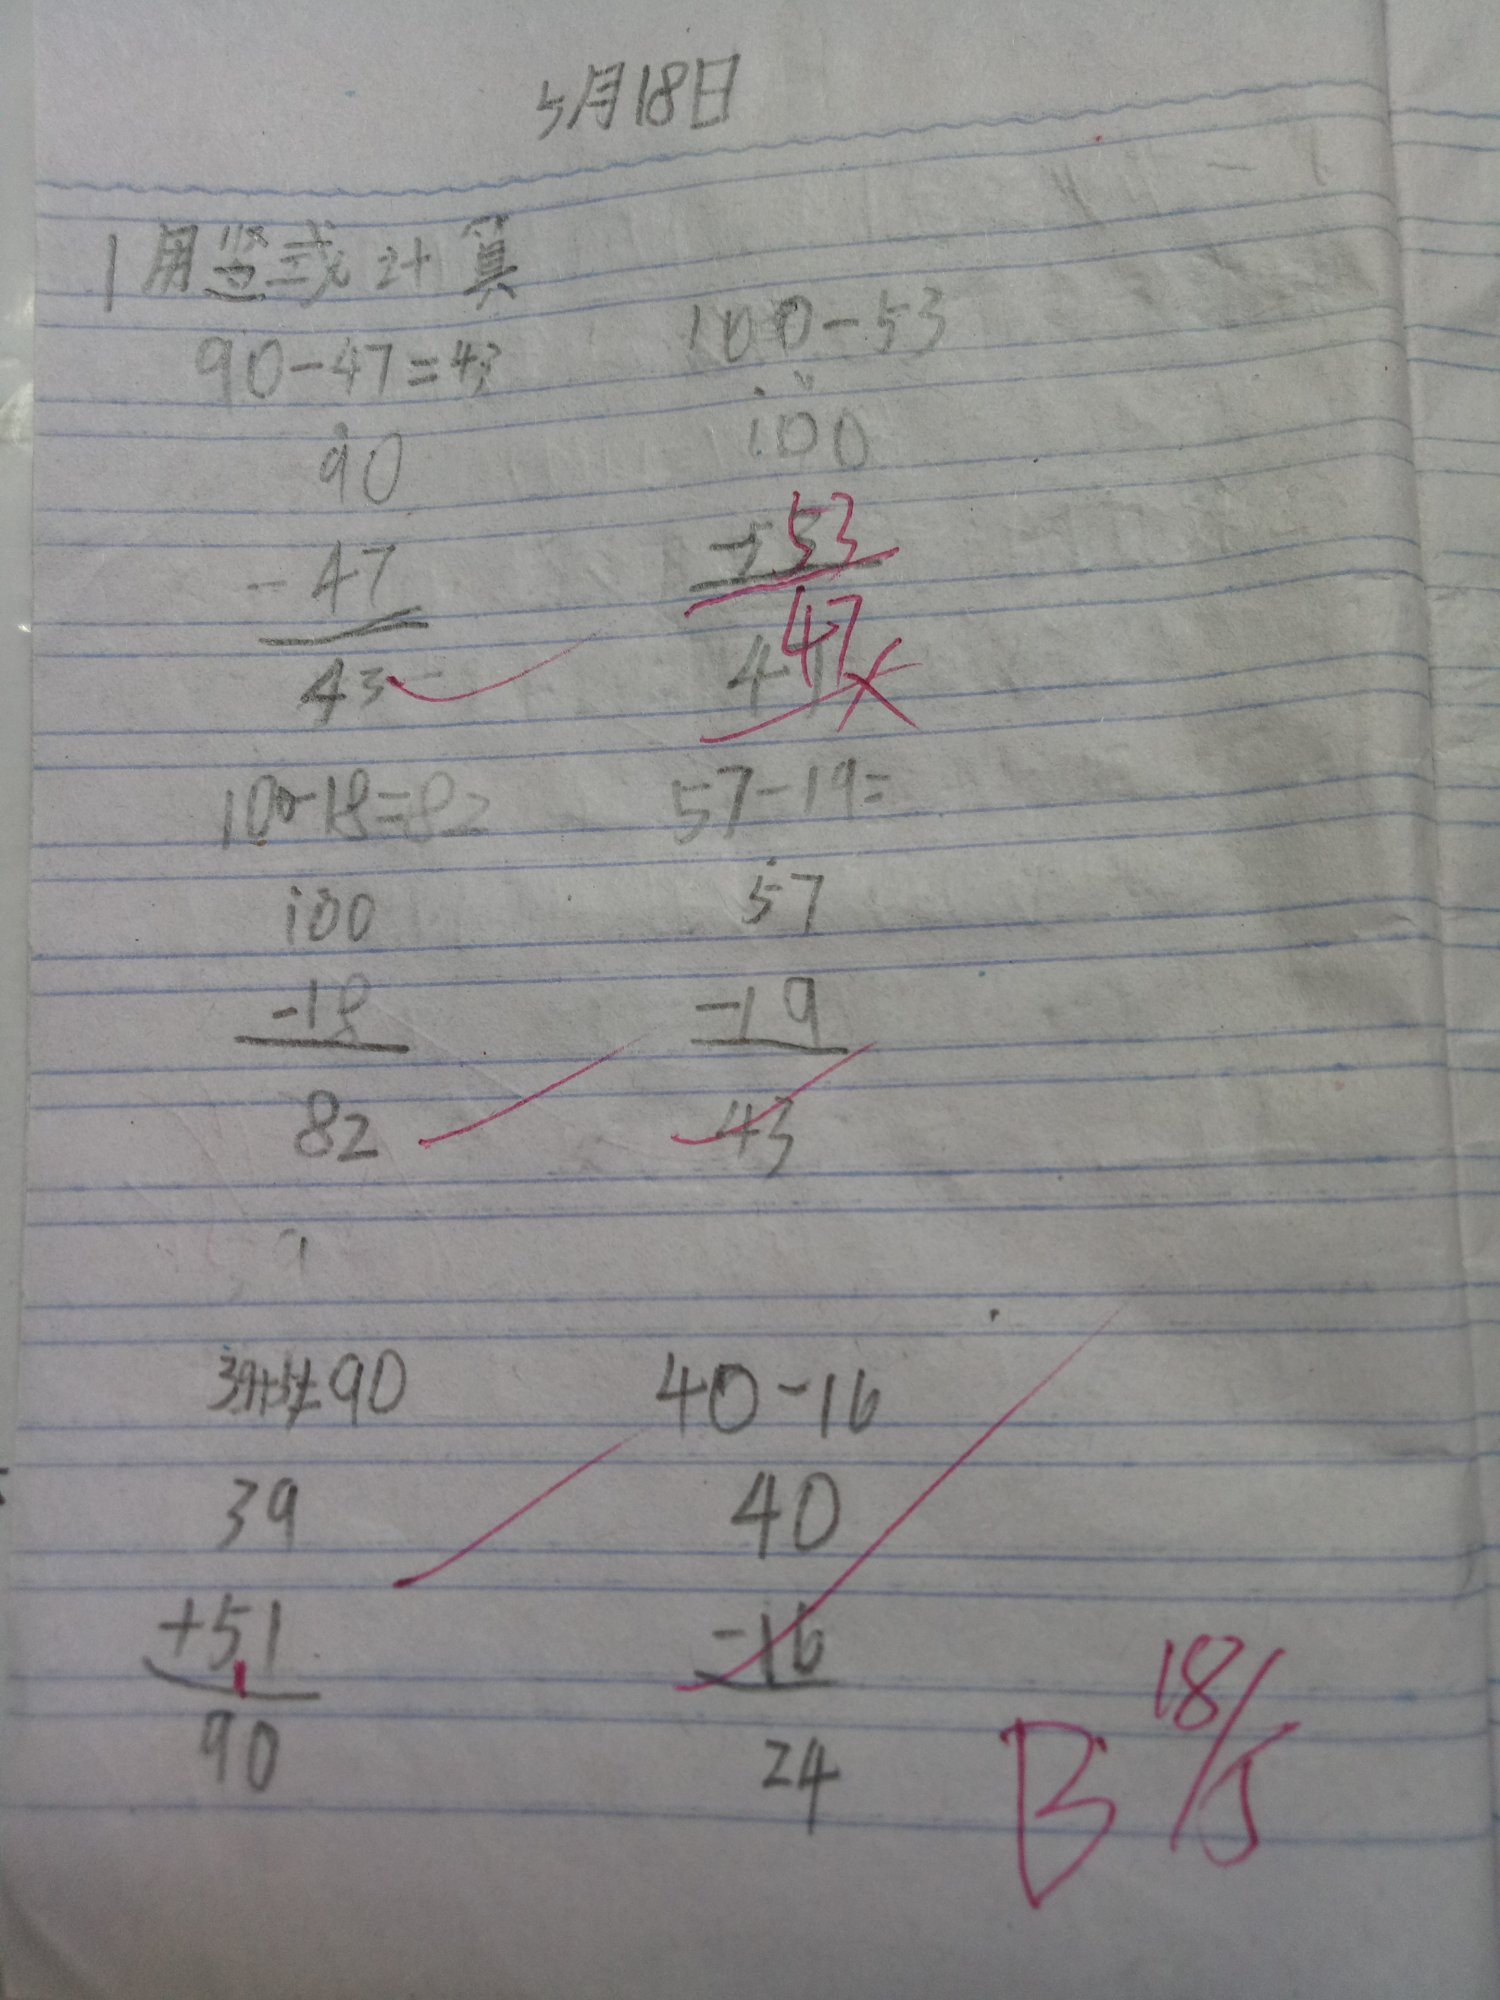 5月18日
1 用竖式计算
90-47=43 100-53
90 100
-47 53
43 47
100-18=82 57-19=
100 57
-18 -19
82 43
39+51=90 40-16
39 40
+51 -16
90 24
B 18/5